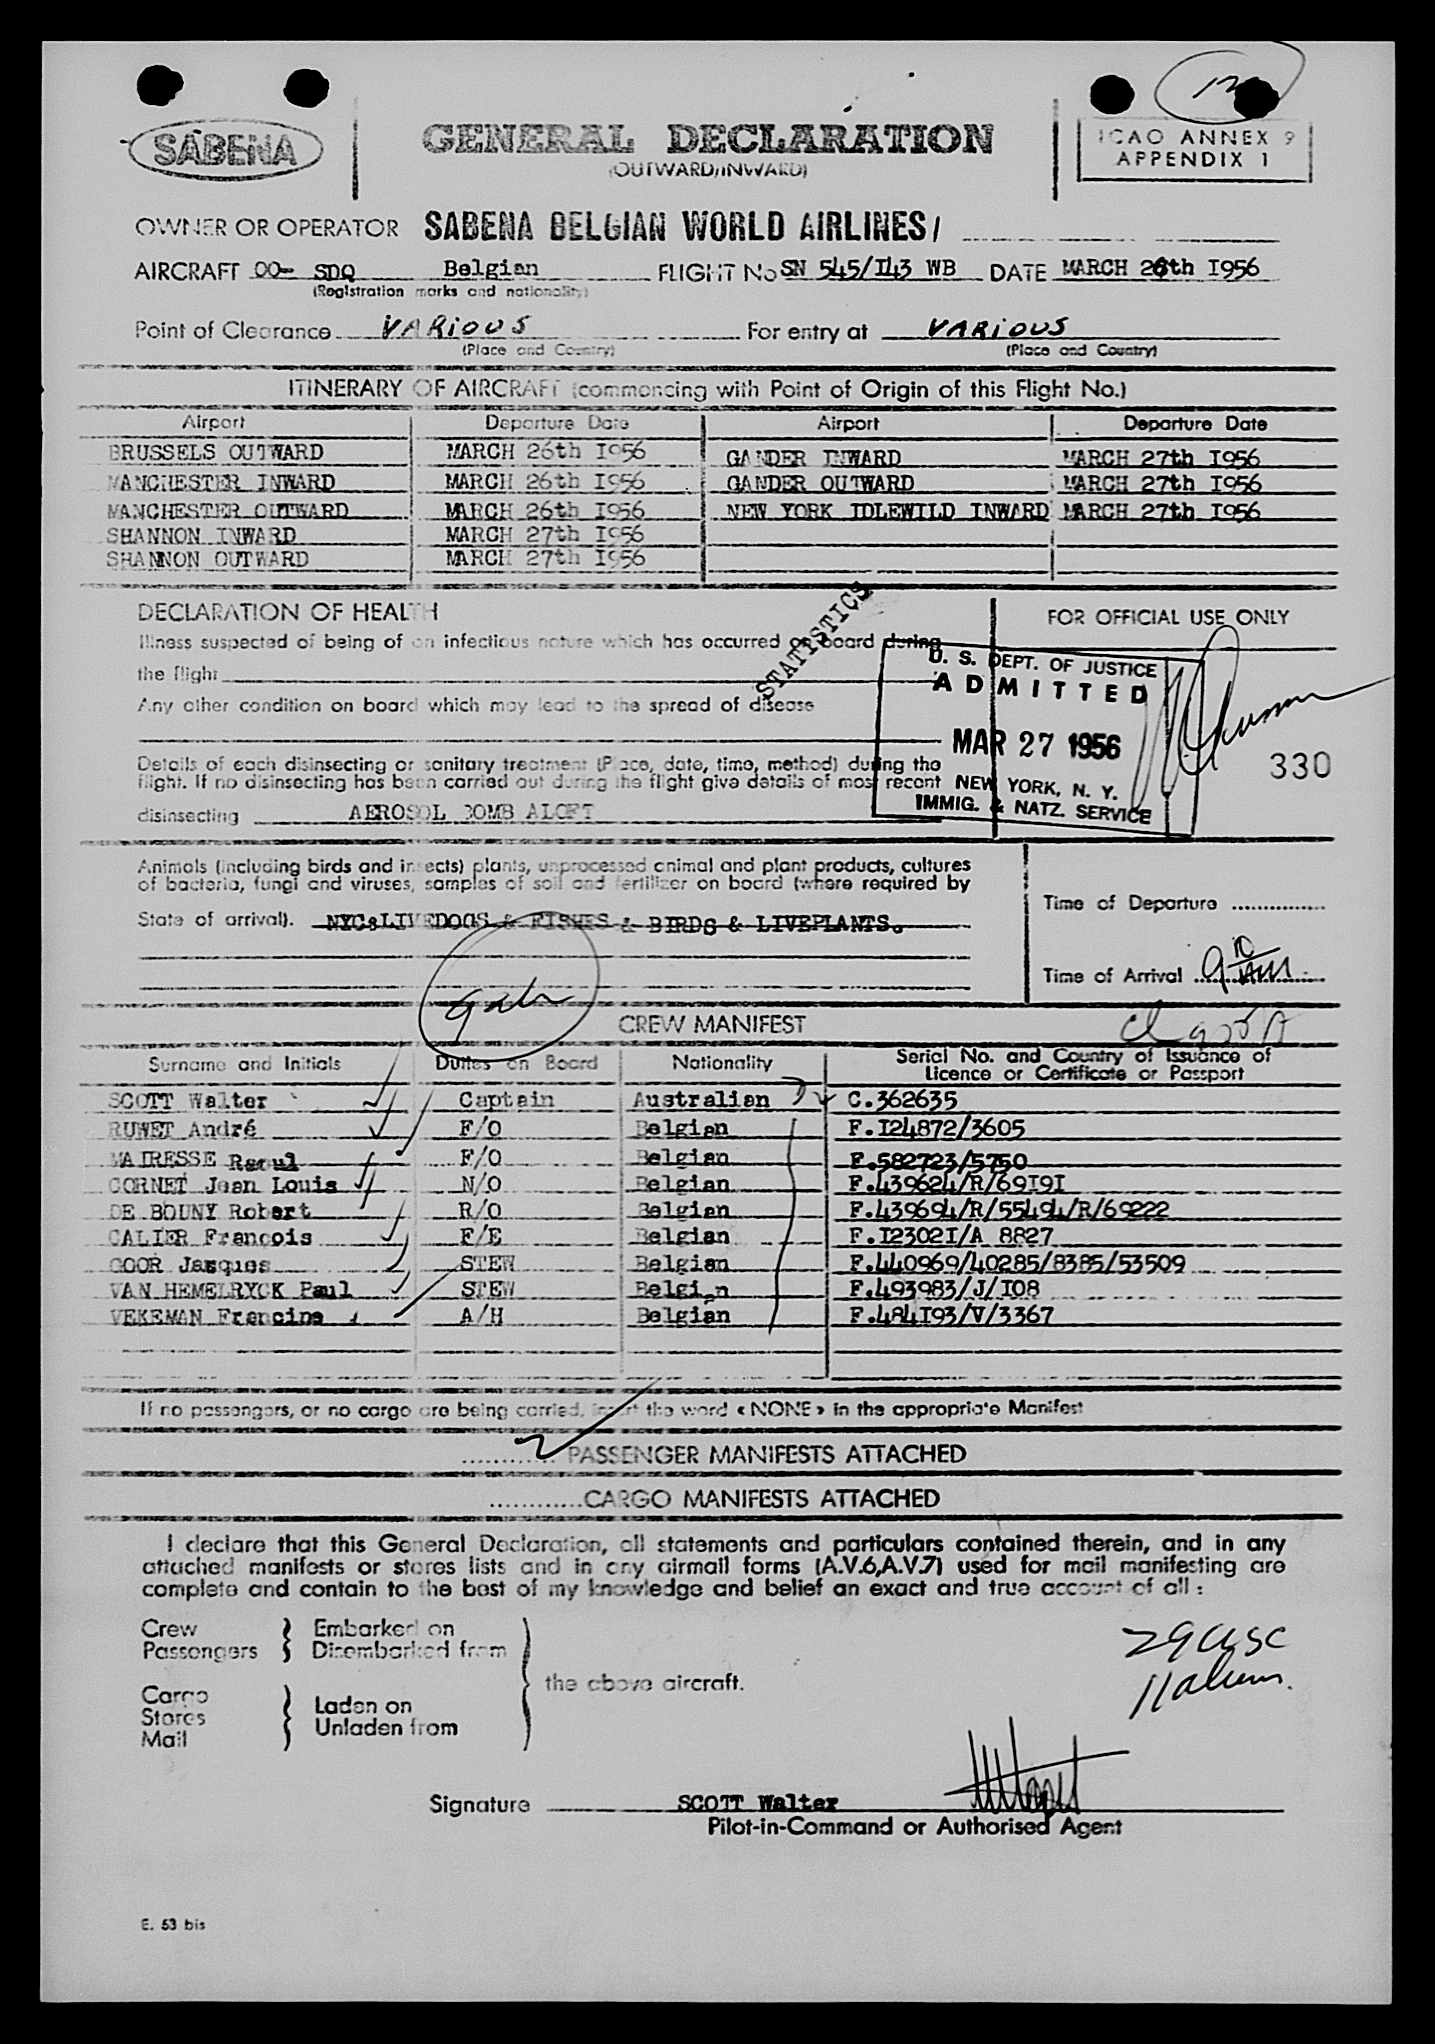 SABENA
GENERAL DECLARATION
(OUTWARD/INWARD)
ICAO ANNEX 9
APPENDIX 1
OWNER OR OPERATOR SABENA BELGIAN WORLD AIRLINES/
AIRCRAFT OO- SDQ Belgian FLIGHT No SN 545/I43 WB DATE MARCH 26th I956
(Registration marks and nationality)
Point of Clearance VARIOUS For entry at VARIOUS
(Place and Country) (Place and Country)
ITINERARY OF AIRCRAFT (commencing with Point of Origin of this Flight No.)
Airport Departure Date Airport Departure Date
BRUSSELS OUTWARD MARCH 26th I956 GANDER INWARD MARCH 27th I956
MANCHESTER INWARD MARCH 26th I956 GANDER OUTWARD MARCH 27th I956
MANCHESTER OUTWARD MARCH 26th I956 NEW YORK IDLEWILD INWARD MARCH 27th I956
SHANNON INWARD MARCH 27th I956
SHANNON OUTWARD MARCH 27th I956
DECLARATION OF HEALTH
FOR OFFICIAL USE ONLY
Illness suspected of being of an infectious nature which has occurred on board during
the flight
Any other condition on board which may lead to the spread of disease
STATISTICS
U. S. DEPT. OF JUSTICE
ADMITTED
MAR 27 1956
NEW YORK, N. Y.
IMMIG. & NATZ. SERVICE
330
Details of each disinsecting or sanitary treatment (Place, date, time, method) during the
flight. If no disinsecting has been carried out during the flight give details of most recent
disinsecting AEROSOL BOMB ALOFT
Animals (including birds and insects) plants, unprocessed animal and plant products, cultures
of bacteria, fungi and viruses, samples of soil and fertilizer on board (where required by
State of arrival). NYC&LIVEDOGS & FISHES & BIRDS & LIVEPLANTS.
Time of Departure
Time of Arrival 9 10 AM
CREW MANIFEST
Surname and Initials Duties on Board Nationality Serial No. and Country of Issuance of
Licence or Certificate or Passport
SCOTT Walter Captain Australian C.362635
RUWET André F/O Belgian F.I24872/3605
MAIRESSE Raoul F/O Belgian F.582723/5750
CORNET Jean Louis N/O Belgian F.439624/R/69I9I
DE BOUNY Robert R/O Belgian F.439694/R/55494/R/69222
CALIER François F/E Belgian F.I2302I/A 8827
GOOR Jacques STEW Belgian F.440969/40285/8385/53509
VAN HEMELRYCK Paul STEW Belgian F.493983/J/I08
VEKEMAN Francine A/H Belgian F.484I93/V/3367
If no passengers, or no cargo are being carried, insert the word « NONE » in the appropriate Manifest
2 PASSENGER MANIFESTS ATTACHED
CARGO MANIFESTS ATTACHED
I declare that this General Declaration, all statements and particulars contained therein, and in any
attached manifests or stores lists and in any airmail forms (A.V.6,A.V.7) used for mail manifesting are
complete and contain to the best of my knowledge and belief an exact and true account of all :
Crew
Passengers
Embarked on
Disembarked from
Cargo
Stores
Mail
Laden on
Unladen from
the above aircraft.
Signature SCOTT Walter
Pilot-in-Command or Authorised Agent
E. 53 bis